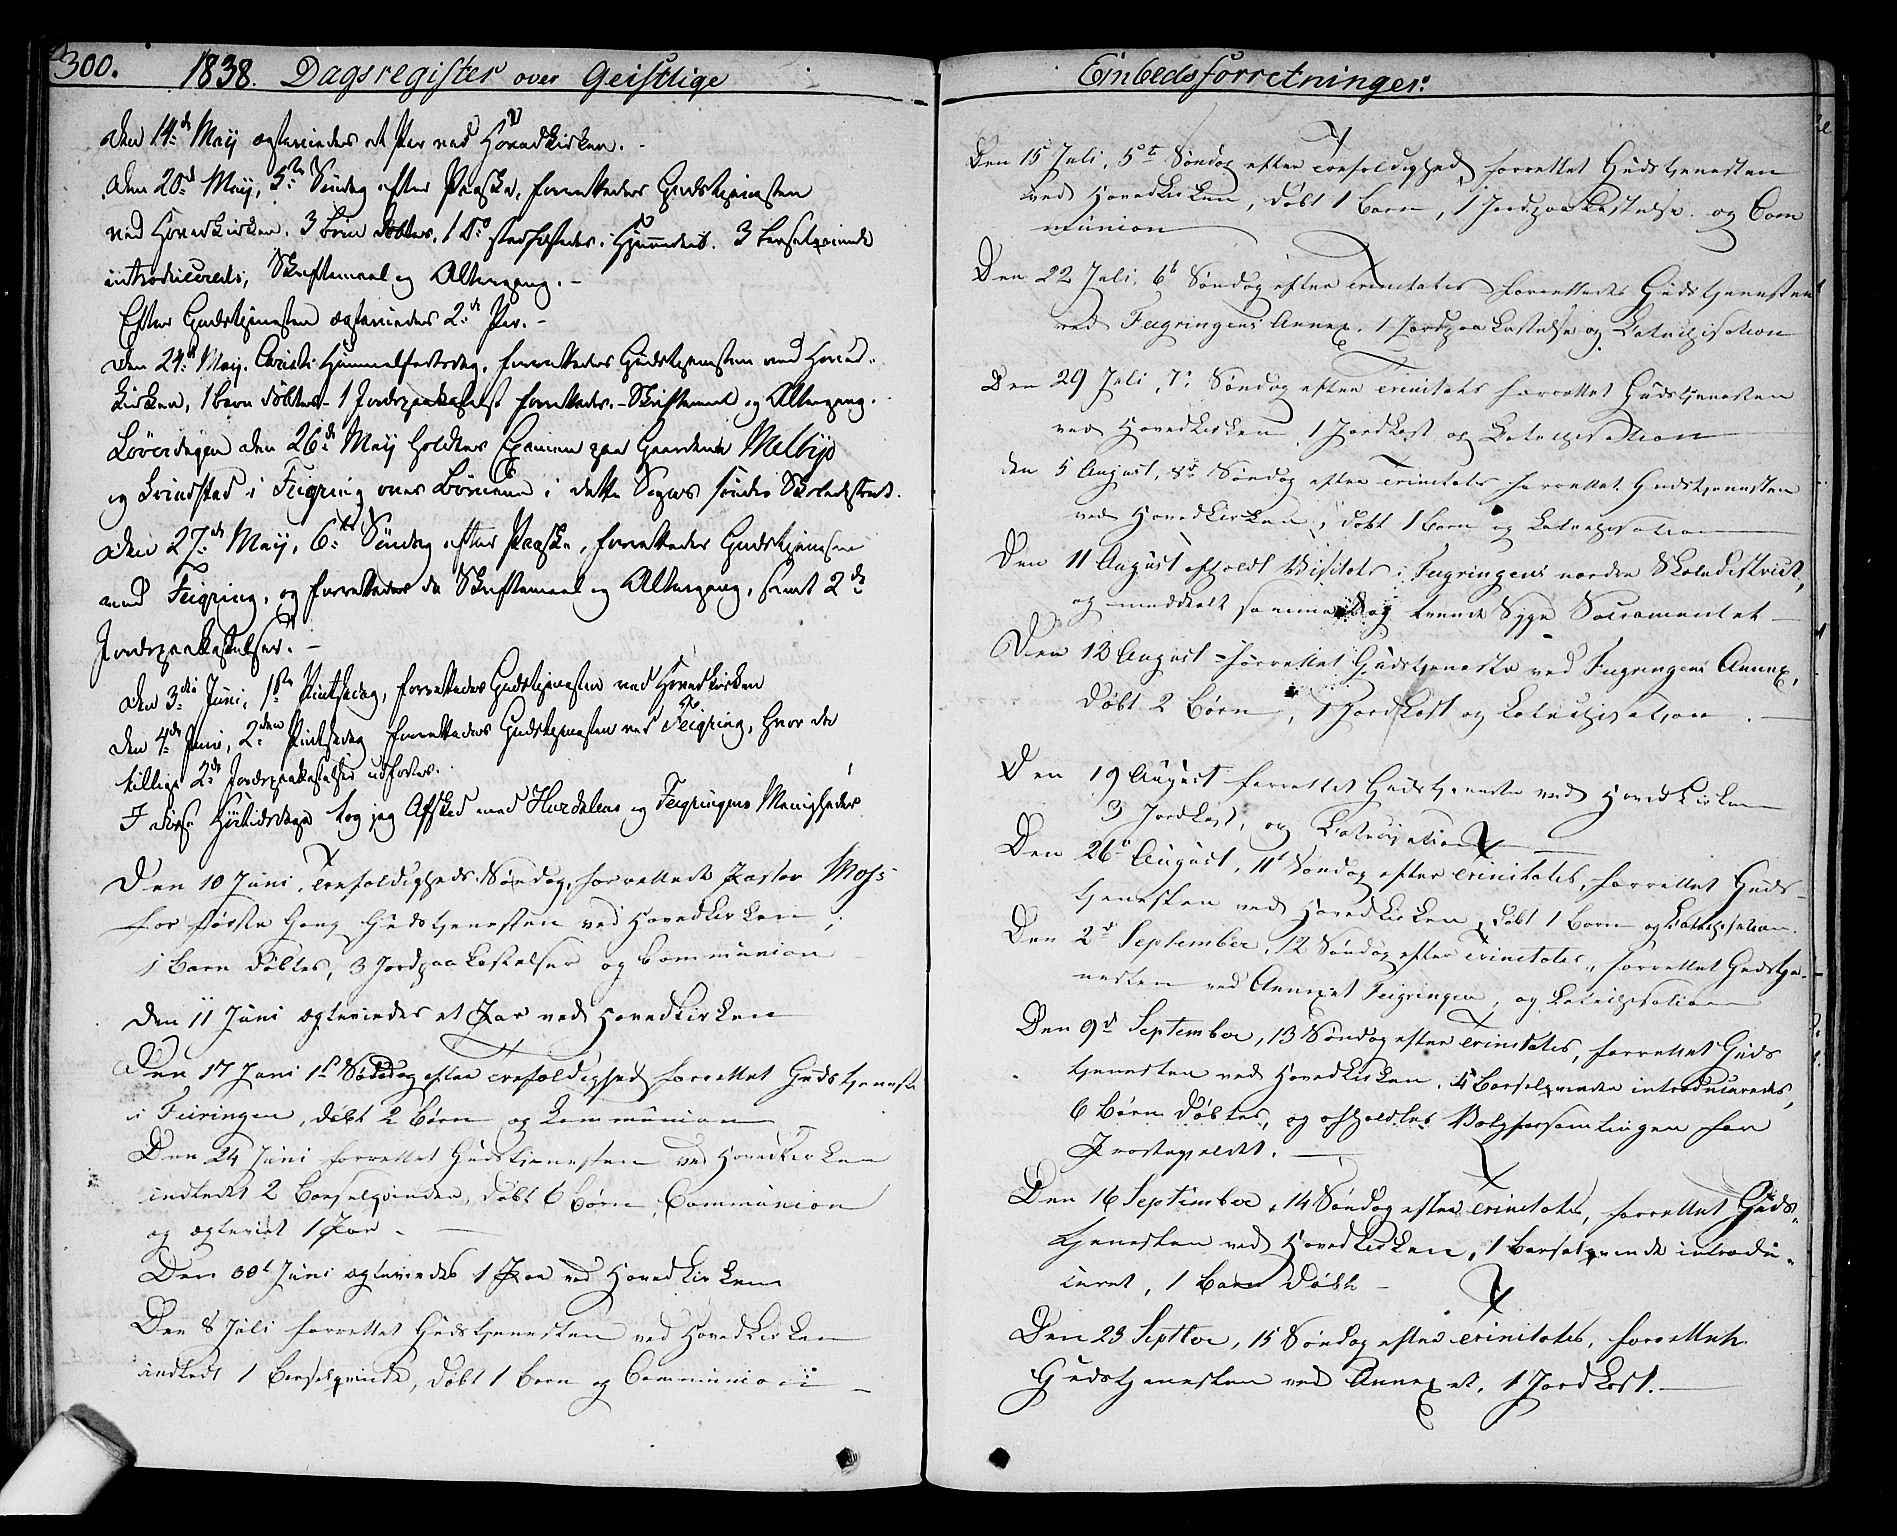 300. 1838. Dagsregister over Geistlige
Den 14de Maÿ ægteviedes et Par ved Hovedkirken. -
Den 20de Maÿ, 5te Søndag efter Paaske, forrettedes Gudstjenesten
ved Hovedkirken. 3 Børn døbtes, 1 Do stadfæstedes i Hjemmedaab. 3 Barselqvinde
introduceredes, Skriftemaal og Altergang. -
Efter Gudstjenesten ægteviedes 2de Par. -
Den 24de Maÿ. Christi Himmelfartsdag, forrettedes Gudstjenesten ved Hoved-
kirken, 1 barn døbtes - 1 Jordpaakastelse forrettedes. - Skriftemaal og Altergang.
Løverdagen den 26de Maÿ holdtes Examen paa Gaardene Melbÿe
og Grindstad i Feigring over Børnene i dette Sogns søndre Skoledistrict.
Den 27de Maÿ, 6te Søndag efter Paaske, forrettedes Gudstjenesten
ved Feigring, og forrettedes da Skriftemaal og Altergang, samt 2de
Jordpaakastelser. -
Den 3die Juni, 1ste Pintsedag, forrettedes Gudstjenesten ved Hovedkirken
Den 4de Juni, 2den Pintsedag forrettedes Gudstjenesten ved Feigring, hvor der
tillige 2de Jordpaakastelser udførtes.
I disse Høitidsdage tog jeg Afsked med Hurdalens og Feigringens Menigheder
Den 10 Juni, Trefoldigheds Søndag, forrettede Pastor Moss
for første Gang Gudstjenesten ved Hovedkirken,
1 Barn døbtes, 3 Jordpaakastelser og Communion
Den 11 Juni ægteviedes et Par ved Hovedkirken
Den 17 Juni 1ste Søndag efter Trefoldighed forrettet Gudstjeneste
i Feiringen, døbt 2 Børn og Communion
Den 24 Juni forrettet Gudstjenesten ved Hovedkirken
indledet 2 Barselqvinder, døbt 6 Børn, Communion
og ægteviet 1 Par -
Den 30t Juni ægteviedes 1 Par ved Hovedkirken
Den 8 Juli forrettet Gudstjenesten ved Hovedkirken
indledt 1 Barselqvinde, døbt 1 Barn og Communion -
Embedsforretninger.
Den 15 Juli, 5te Søndag efter Trefoldighed forrettet Gudstjenesten
ved Hovedkirken, døbt 1 Barn, 1 Jordpaakastelse og Com
munion
Den 22 Juli, 6t Søndag efter Trinitatis forrettedes Gudstjenesten
ved Feigringens Annex, 1 Jordpaakastelse og Catechisation
Den 29 Juli, 7. Søndag efter Trinitatis forrettet Gudstjenesten
ved Hovedkirken 1 Jordkast og Catechisation
Den 5 August, 8de Søndag efter Trinitatis forrettet Gudstjenesten
ved Hovedkirken, døbt 1 Barn og Catechisation
Den 11 August afholdt Visitats i Feigringens nordre Skoledistrict,
og meddeelt samme Dag tvende Syge Sacramentet -
Den 12 August forrettet Gudstjeneste ved Feigringens Annex,
døbt 2 Børn, 1 Jordkast og Catechisation. -
Den 19 August forrettet Gudstjeneste ved Hovedkirken
3 Jordkast, og Catechisation
Den 26d August, 11t Søndag efter Trinitatis, forrettet Guds-
tjenesten ved Hovedkirken, døbt 1 Barn og Catechisation.
Den 2d September, 12 Søndag efter Trinitatis, forrettet Gudstje-
nesten ved Annexet Feigringen, og Catechisation
Den 9d September, 13 Søndag efter Trinitatis, forrettet Guds
tjenesten ved Hovedkirken, 4 Barselqvinder introduceredes,
6 Børn døbtes, og afholdtes Valgforsamlingen for
Præstegjeldet. -
Den 16 September, 14 Søndag efter Trinitatis, forrettet Guds-
tjenesten ved Hovedkirken, 1 Barselqvinde introdu-
ceret, 1 Barn døbt -
Den 23 Septbr, 15 Søndag efter Trinitatis, forrettet
Gudstjenesten ved Annexet, 1 Jordkast. -